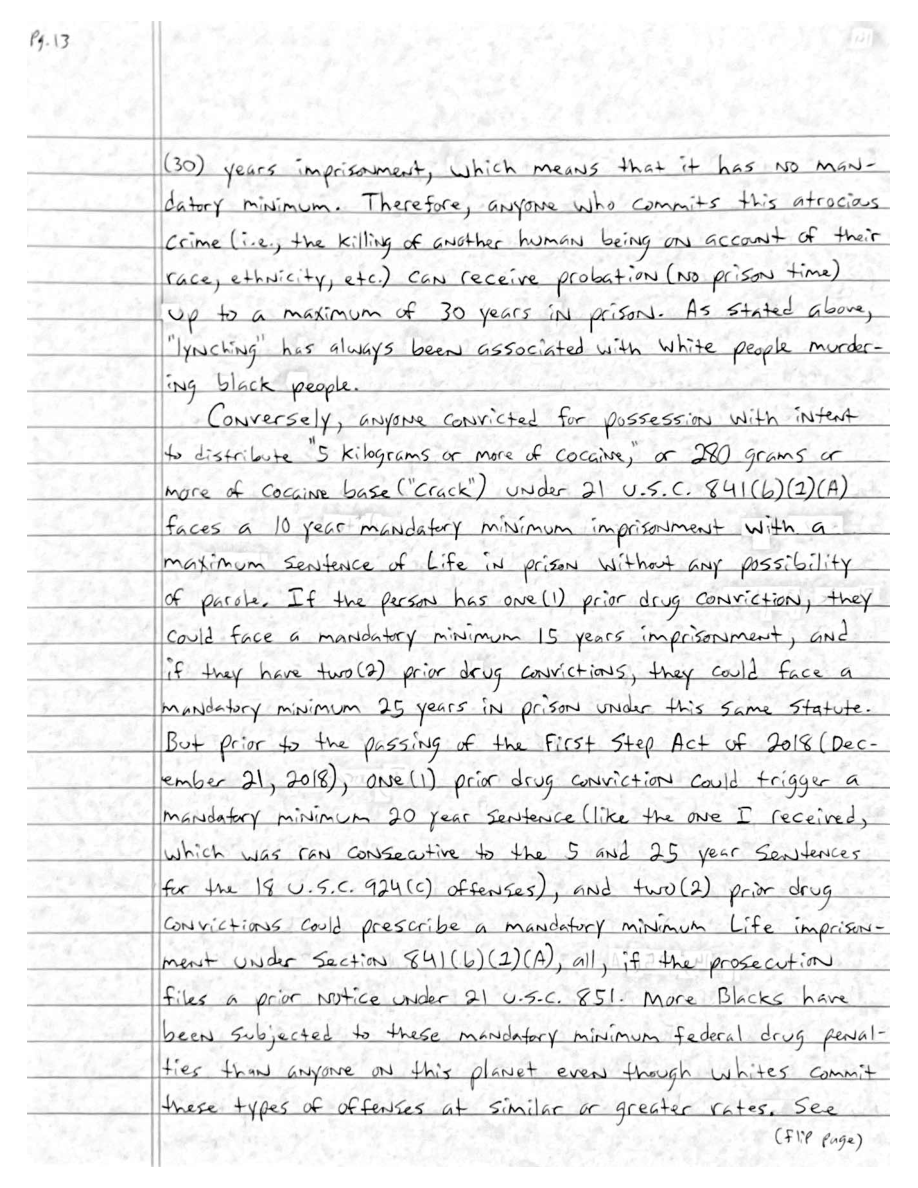 Pg. 13
(30) years imprisonment, which means that it has no man-
datory minimum. Therefore, anyone who commits this atrocious
crime (i.e., the killing of another human being on account of their
race, ethnicity, etc.) can receive probation (no prison time)
up to a maximum of 30 years in prison. As stated above,
"lynching" has always been associated with white people murder-
ing black people.
Conversely, anyone convicted for possession with intent
to distribute "5 kilograms or more of cocaine," or 280 grams or
more of cocaine base ("crack") under 21 U.S.C. 841(b)(1)(A)
faces a 10 year mandatory minimum imprisonment with a
maximum sentence of Life in prison without any possibility
of parole. If the person has one (1) prior drug conviction, they
could face a mandatory minimum 15 years imprisonment, and
if they have two (2) prior drug convictions, they could face a
mandatory minimum 25 years in prison under this same statute.
But prior to the passing of the First Step Act of 2018 (Dec-
ember 21, 2018), one (1) prior drug conviction could trigger a
mandatory minimum 20 year sentence (like the one I received,
which was ran consecutive to the 5 and 25 year sentences
for the 18 U.S.C. 924(c) offenses), and two (2) prior drug
convictions could prescribe a mandatory minimum Life imprison-
ment under Section 841(b)(1)(A), all, if the prosecution
files a prior notice under 21 U.S.C. 851. More Blacks have
been subjected to these mandatory minimum federal drug penal-
ties than anyone on this planet even though whites commit
these types of offenses at similar or greater rates. See
(flip page)